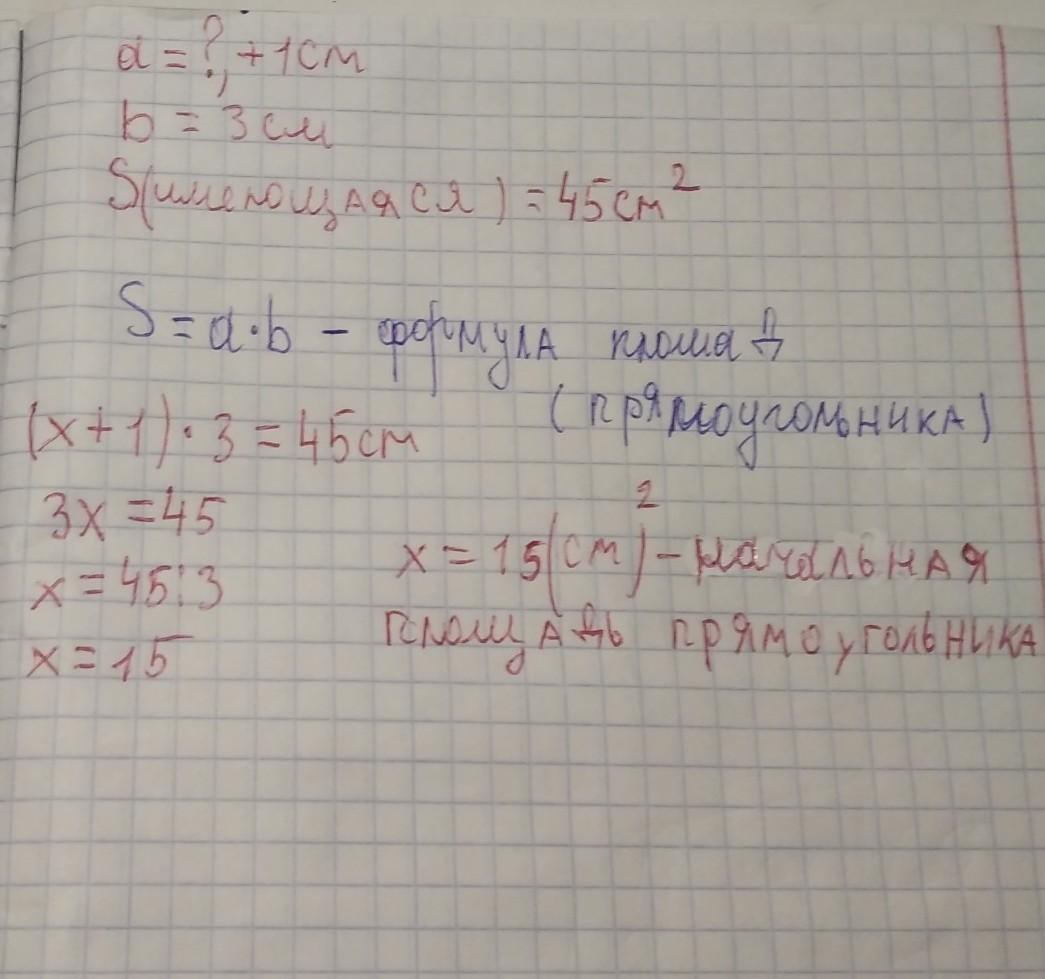 a = ?, + 1 см
b = 3 см
S(имеющаяся) = 45 см²
S = a · b – формула площад
(прямоугольника)
(x + 1) · 3 = 45 см
3x = 45
x = 45 : 3
x = 15
x = 15 (см)² – начальная
площадь прямоугольника